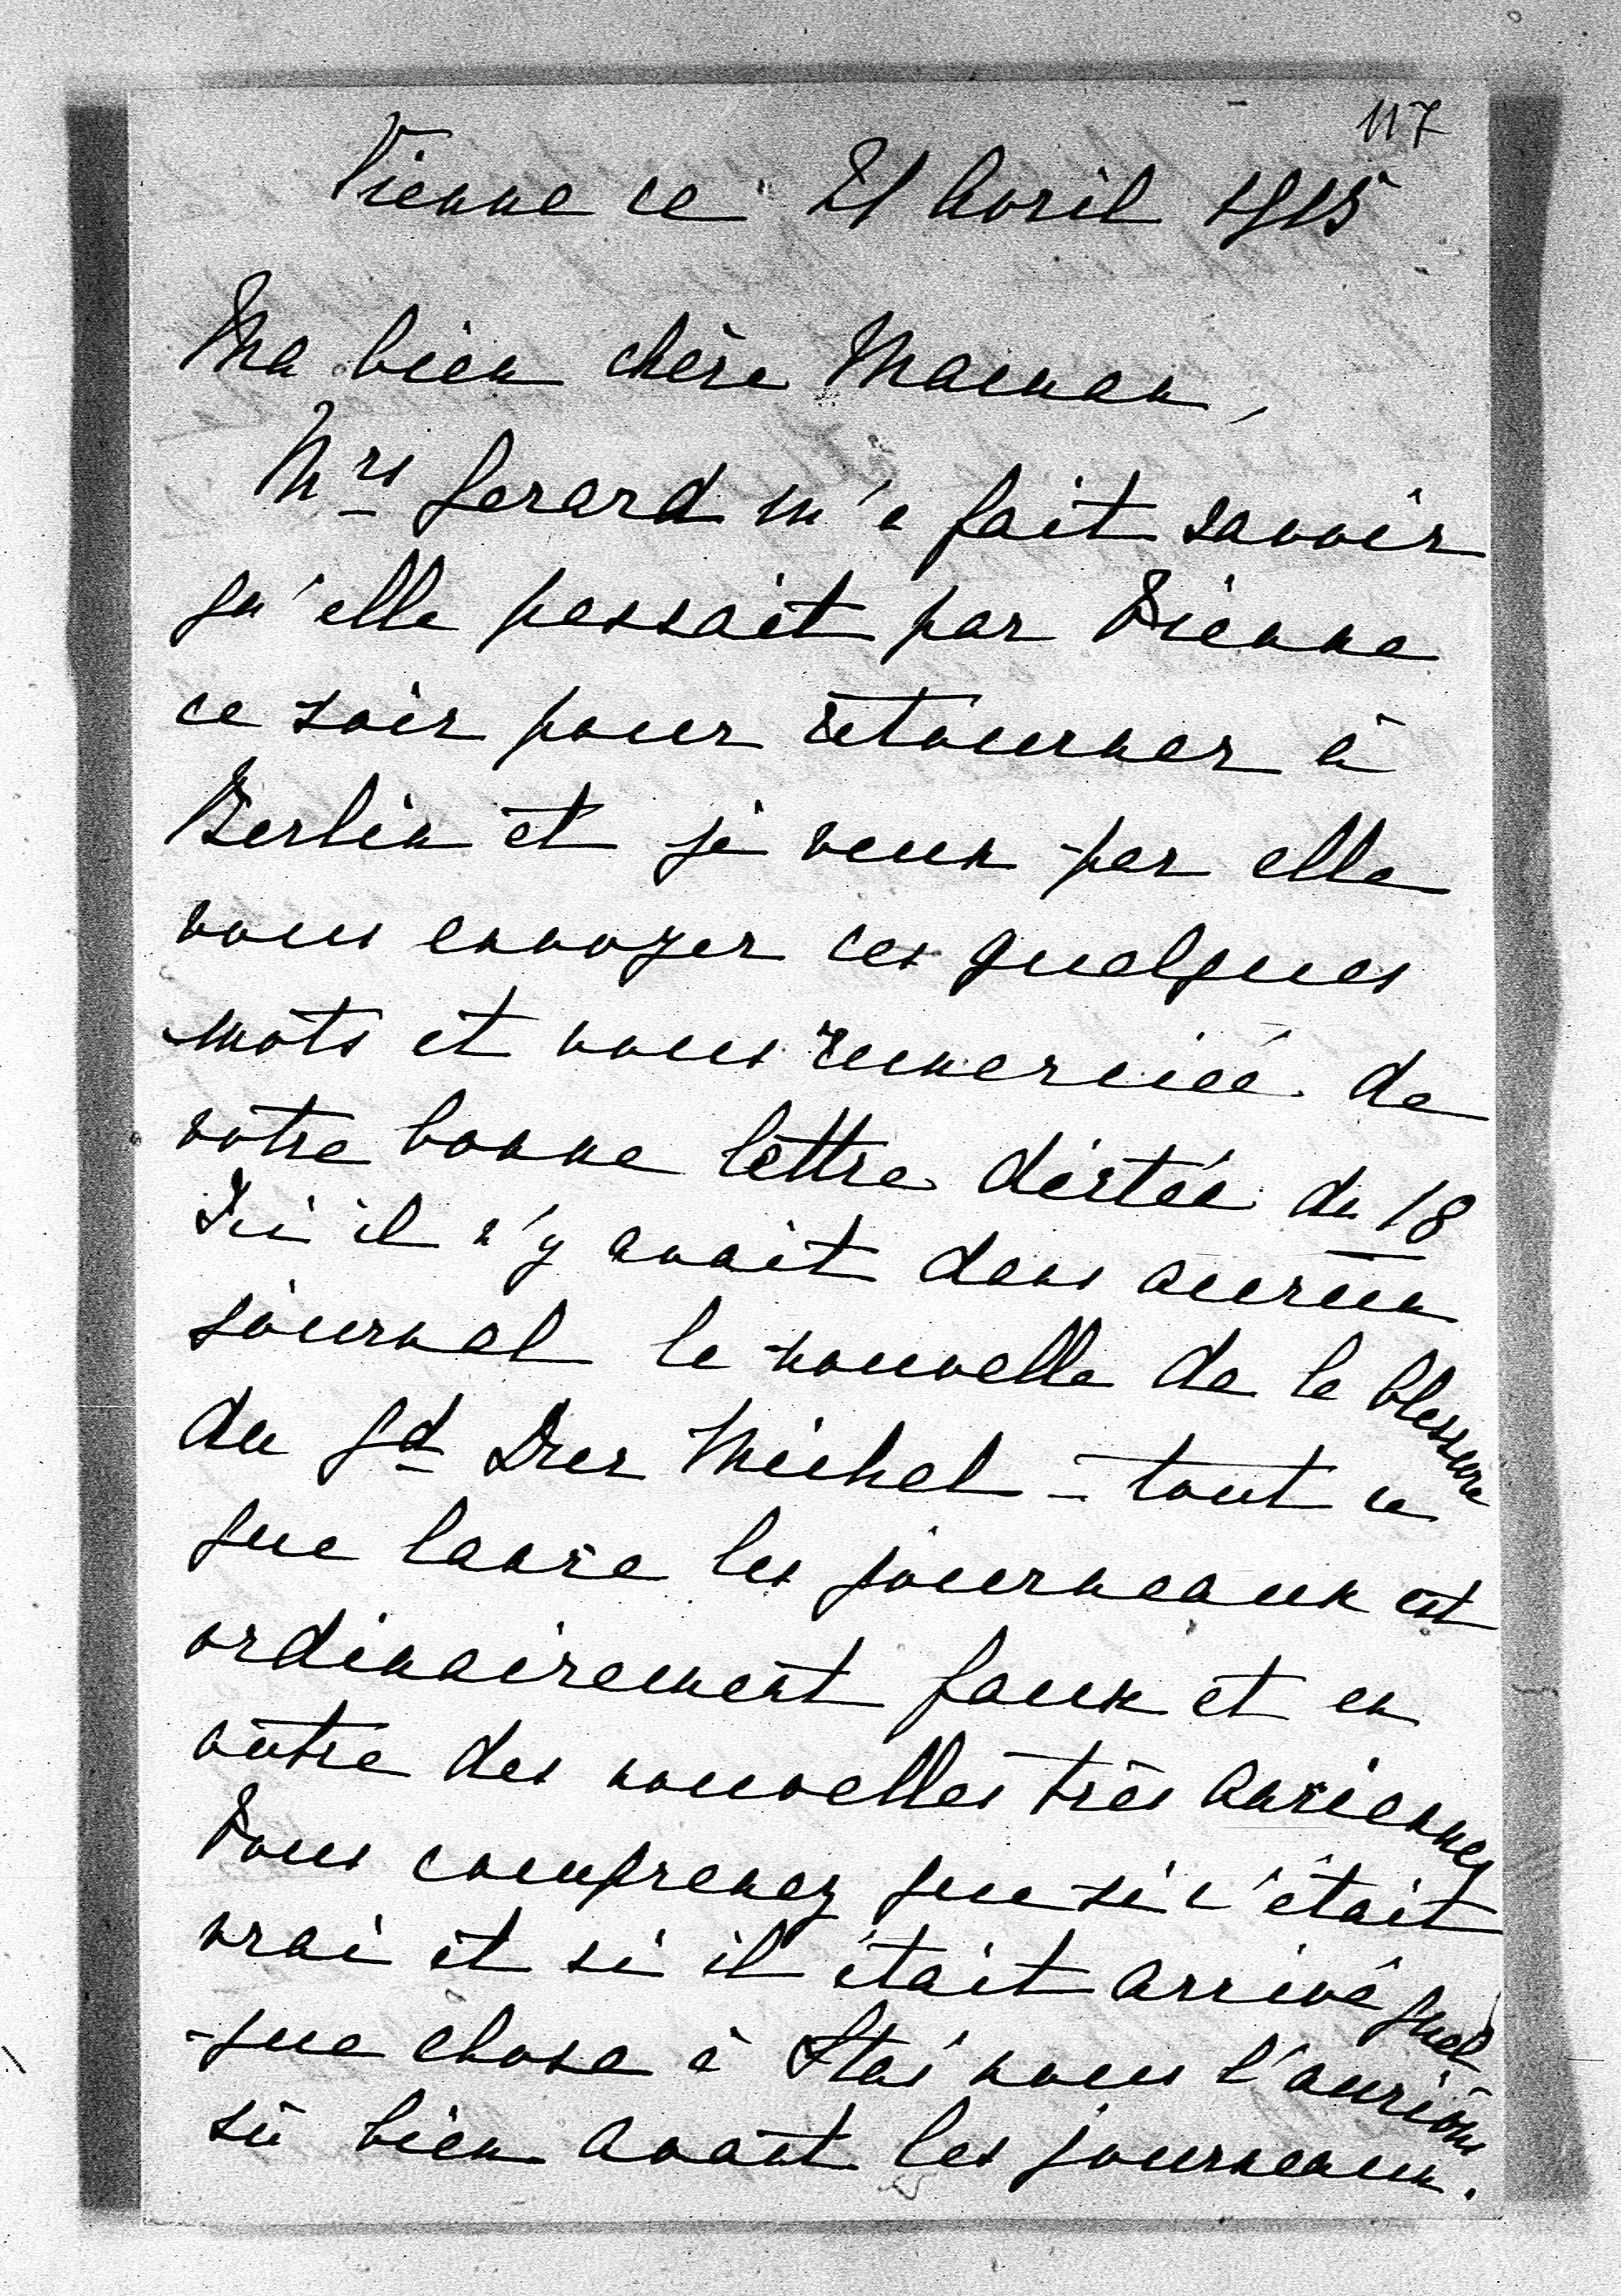 117
Vienne ce 21 Avril 1915
Ma bien chère Maman,
Mrs Gerard m'a fait savoir
qu'elle passait par Vienne
ce soir pour retourner à
Berlin et je veux par elle
vous envoyer ces quelques
mots et vous remercier de
votre bonne lettre dictée du 18
Ici il n'y avait dans aucun
journal la nouvelle de la blessure
du Gd Duc Michel – tout ce
que lance les journeaux est
ordinairement faux et en
outre des nouvelles très anciennes
Vous comprenez que si c'était
vrai et si il était arrivé quel
-que chose à nous l'aurions
sû bien avant les journeaux.